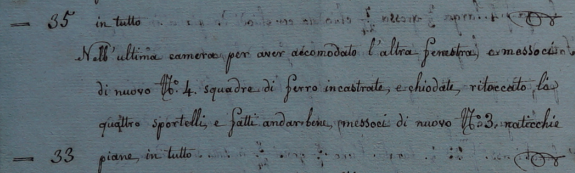 — 35 in tutto
Nell'ultima camera per aver accomodato l'altra fenestra, e messoci
di nuovo N.º 4. squadre di ferro incastrate, e chiodate, ritoccato li
quattro sportelli, e fatti andar bene, messoci di nuovo N.º 3. naticchie
— 33 piane, in tutto